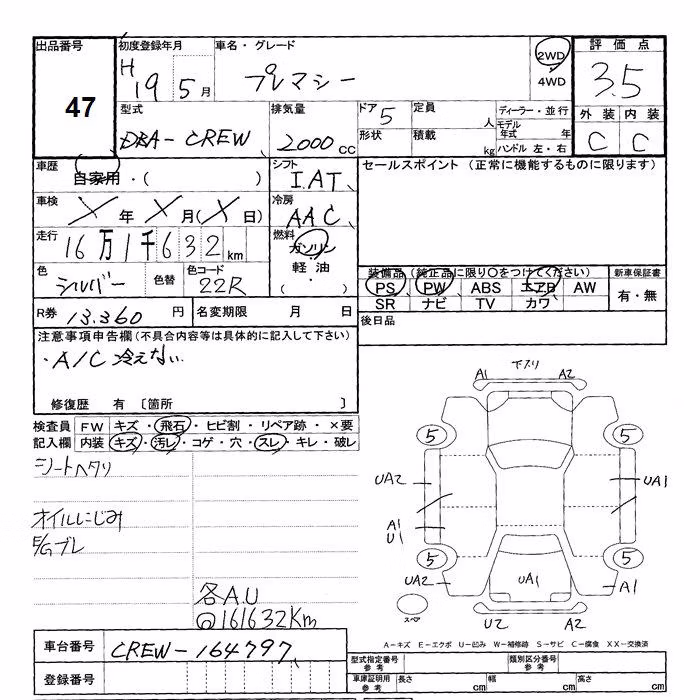 出品番号
47
初度登録年月
H19 5月
車名・グレード
プレマシー
2WD
4WD
評価点
3.5
型式
DBA-CREW
排気量
2000 cc
ドア 5
形状
定員 人
積載 kg
ディーラー・並行
モデル年式 年
ハンドル 左・右
外装 内装
C C
車歴
自家用・( )
シフト
I.AT
セールスポイント（正常に機能するものに限ります）
車検
X 年 X 月(X 日)
冷房
AAC
走行
16万1千632km
燃料
ガソリン
軽油
・( )
色
シルバー
色替
色コード
22R
装備品（純正品に限り○をつけてください）
PS PW ABS エアB AW
SR ナビ TV カワ
新車保証書
有・無
R券 13.360 円
名変期限 月 日
後日品
注意事項申告欄（不具合内容等は具体的に記入して下さい）
・A/C 冷えない
修復歴 有 〔箇所 〕
検査員記入欄
FW キズ・飛石・ヒビ割・リペア跡・×要
内装 キズ・汚レ・コゲ・穴・スレ・キレ・破レ
シートヘタリ
オイルにじみ
E/Gブレ
各A.U
@161632Km
下スリ
A1 A2
5 5
UA2 UA1
A1
U1
5 5
UA2 UA1 A1
スペア
U2 A2
A－キズ E－エクボ U－凹み W－補修跡 S－サビ C－腐食 XX－交換済
車台番号
CREW-164797
登録番号
型式指定番号 参考
類別区分番号 参考
車庫証明用 参考
長さ cm 幅 cm 高さ cm